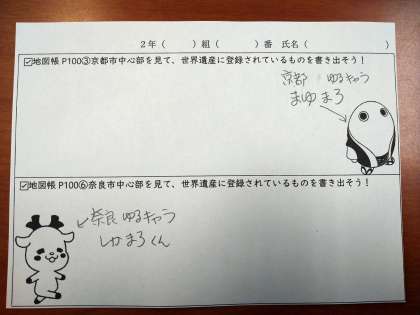 2年（　　）組（　　）番　氏名（　　　　　　　）
☑地図帳 P100③京都市中心部を見て、世界遺産に登録されているものを書き出そう！
京都　ゆるキャラ
まゆまろ
☑地図帳 P100⑥奈良市中心部を見て、世界遺産に登録されているものを書き出そう！
奈良 ゆるキャラ
しかまろくん